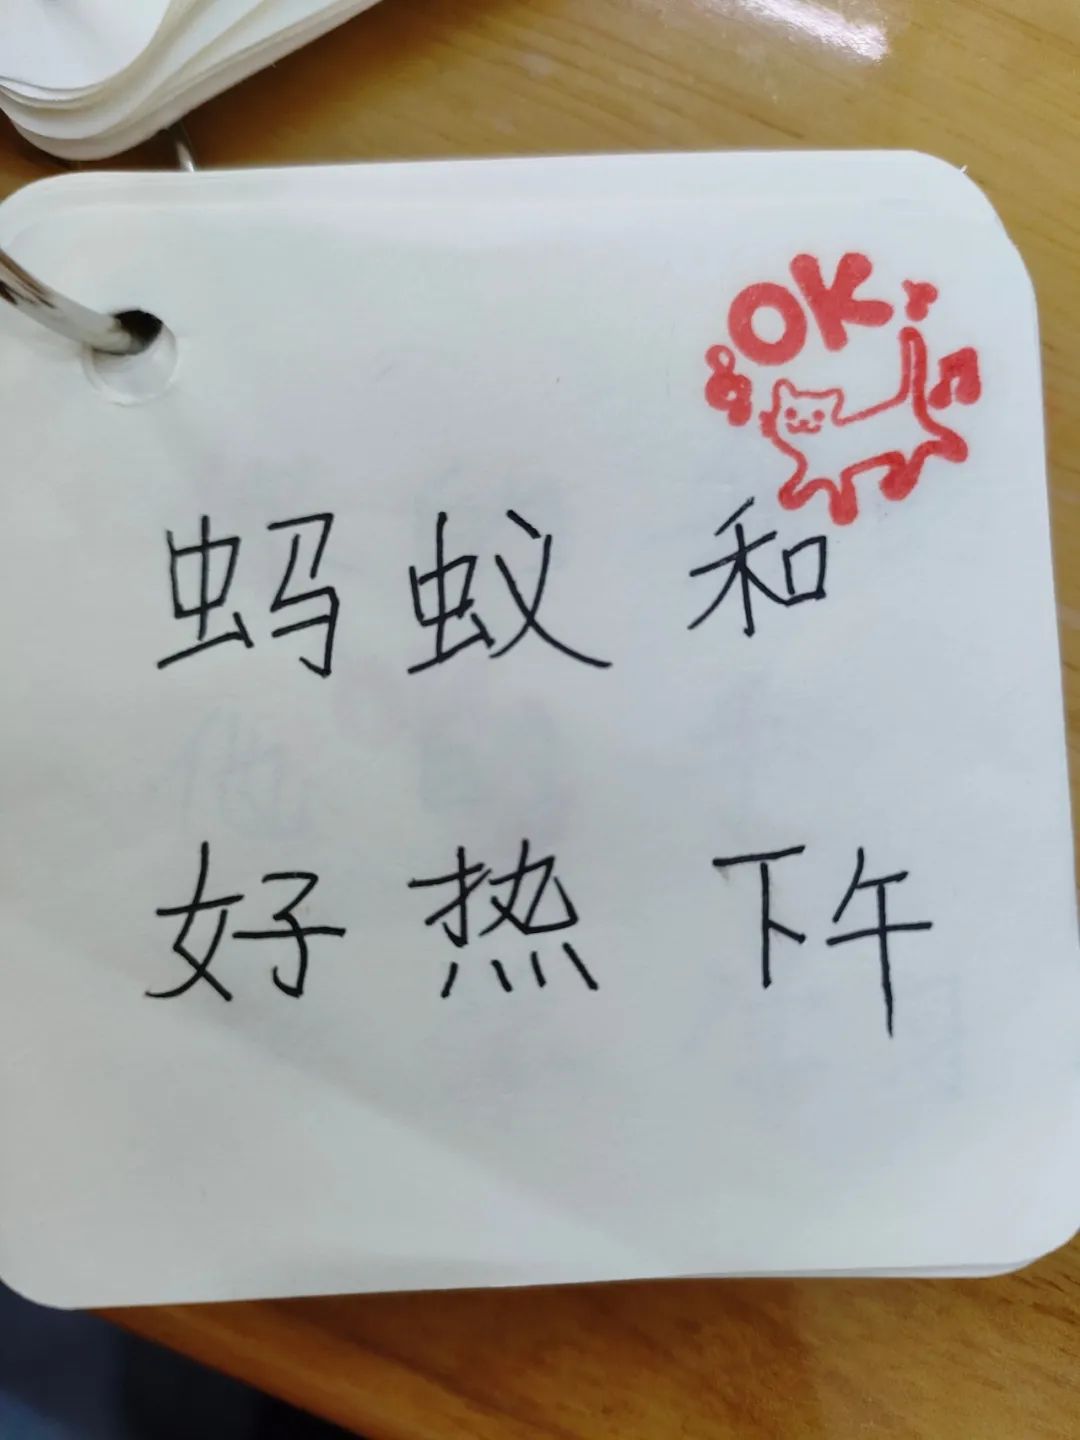 OK
蚂蚁 和
好 热 下午